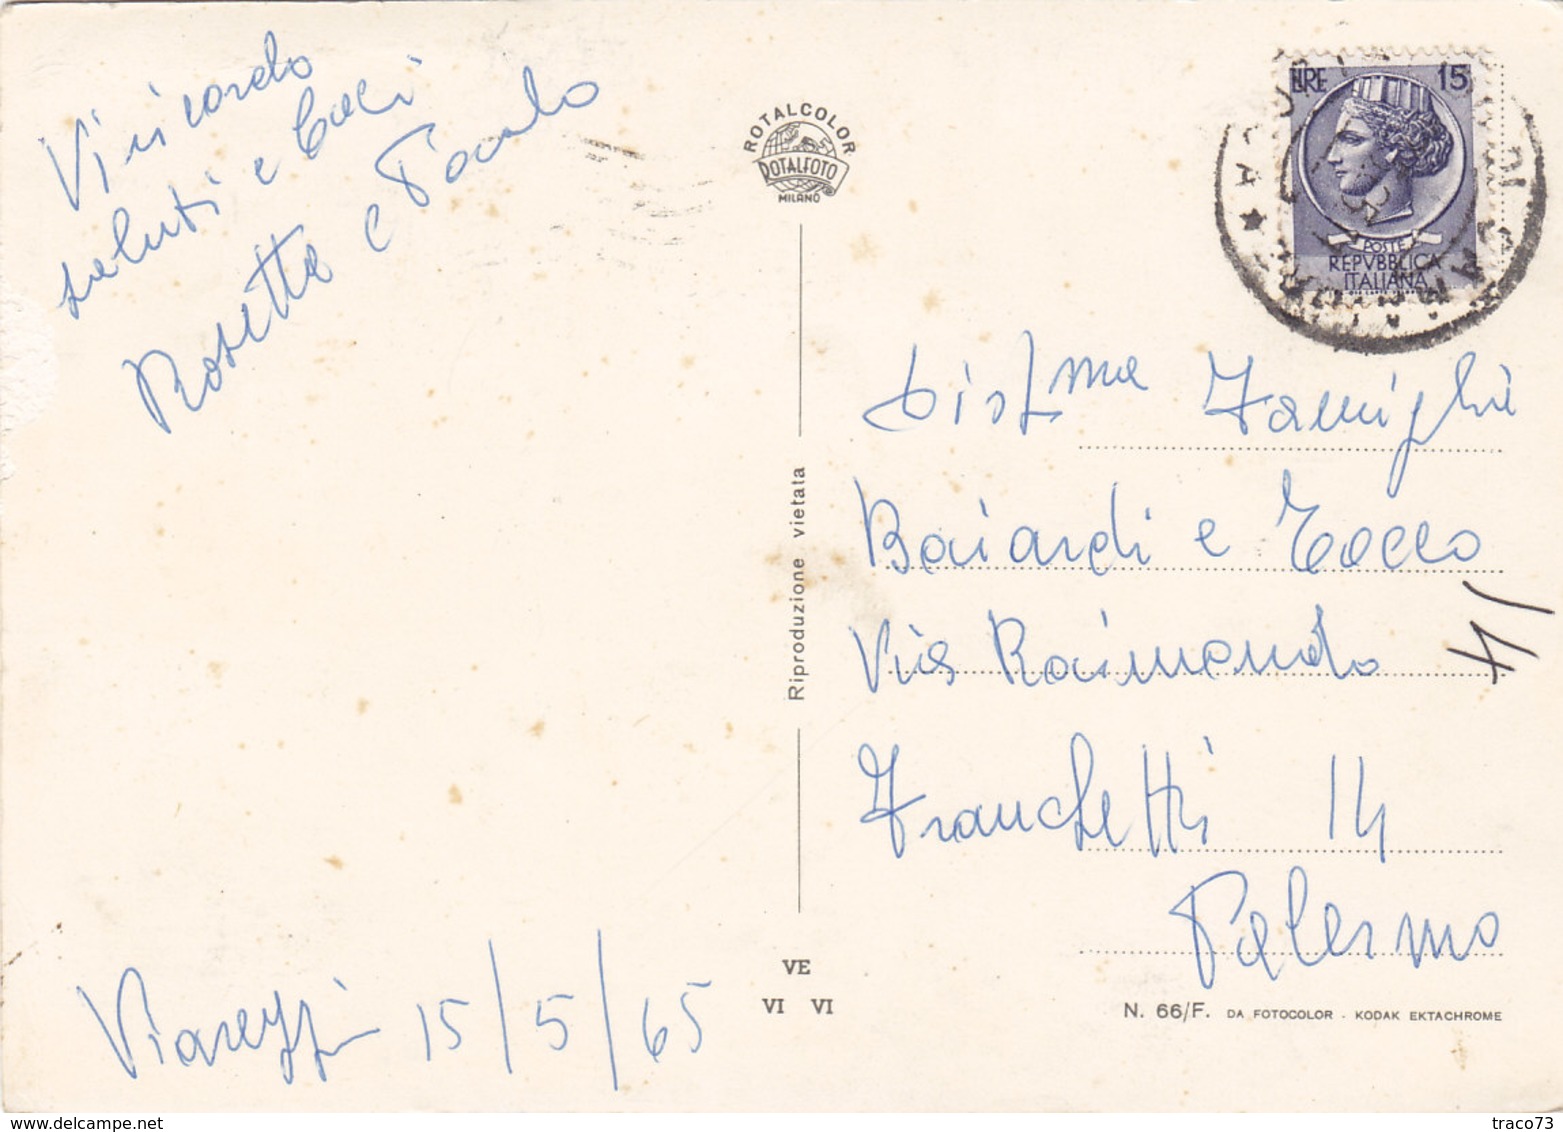 Vi ricordo
saluti e baci
Rosetta e Paolo
Viareggio 15/5/65
ROTALCOLOR
ROTALFOTO
MILANO
Riproduzione vietata
VE
VI VI
LIRE 15
POSTE
REPVBBLICA
ITALIANA
Dist.ma Famiglia
Baiardi e Tocco
Via Raimondo
Franchetti 14
Palermo
N. 66/F. DA FOTOCOLOR - KODAK EKTACHROME
traco73